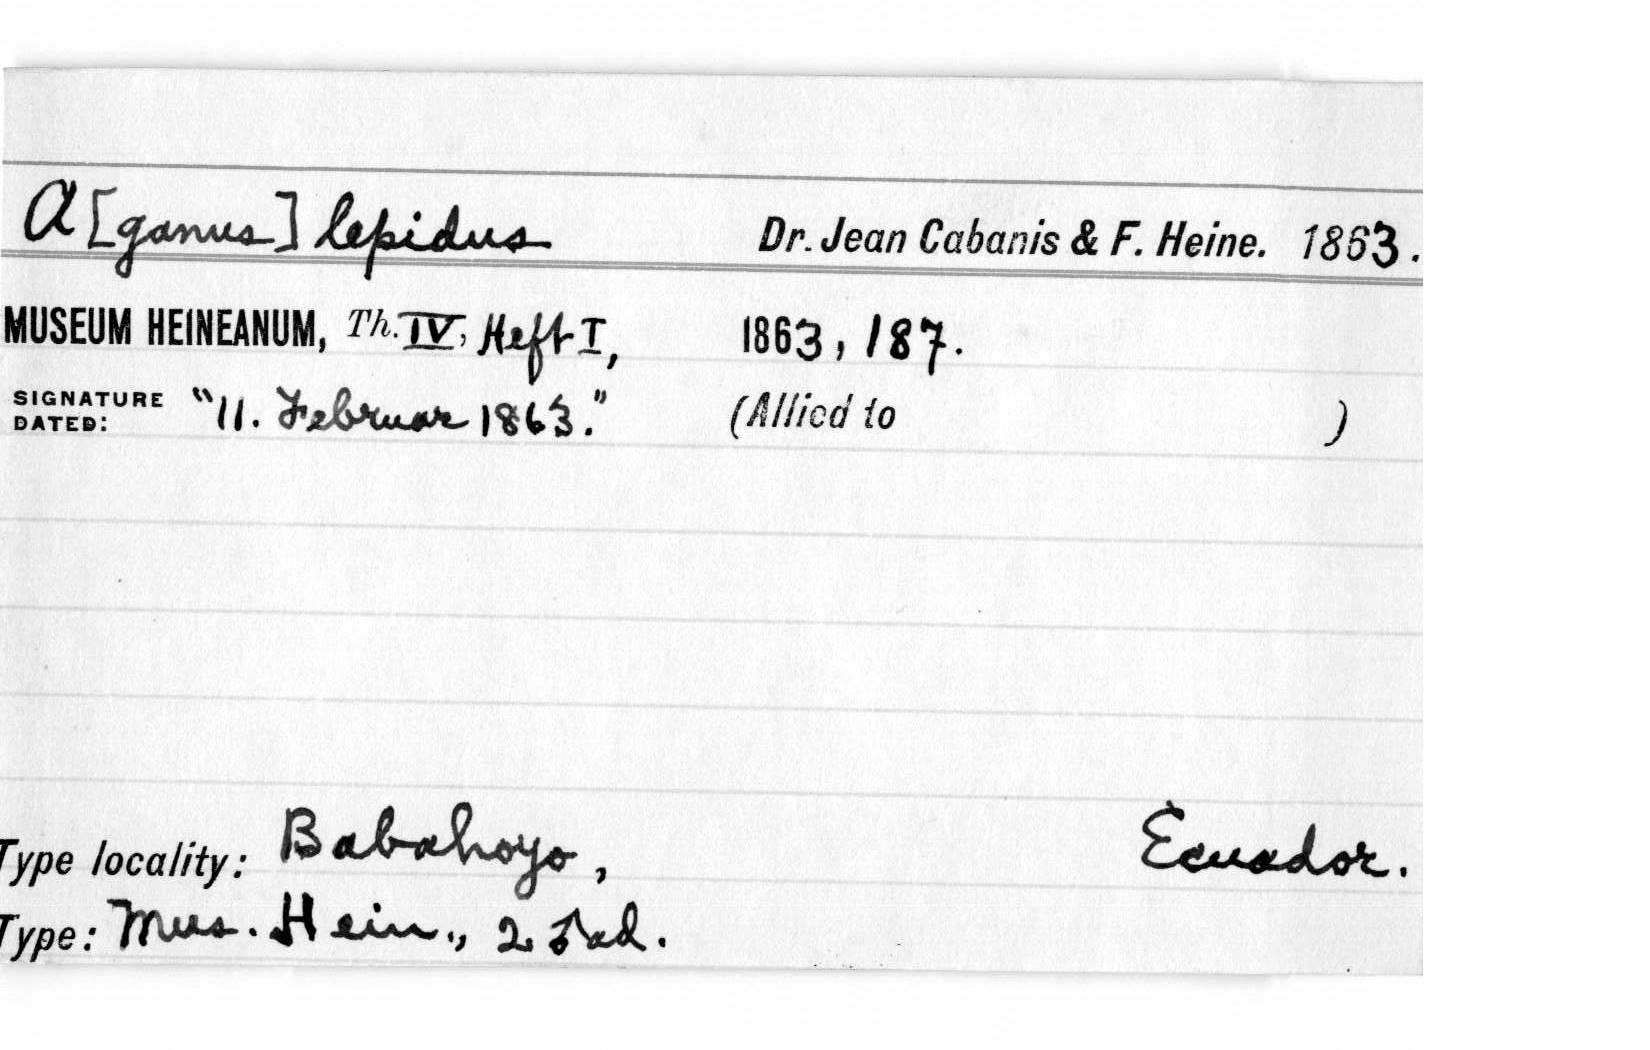 A[ganus] lepidus Dr. Jean Cabanis & F. Heine. 1863.
MUSEUM HEINEANUM, Th. IV, Heft I, 1863, 187.
SIGNATURE DATED: "11. Februar 1863." (Allied to )
Type locality: Babahoyo, Ecuador.
Type: Mus. Hein., 2 ♂ ad.